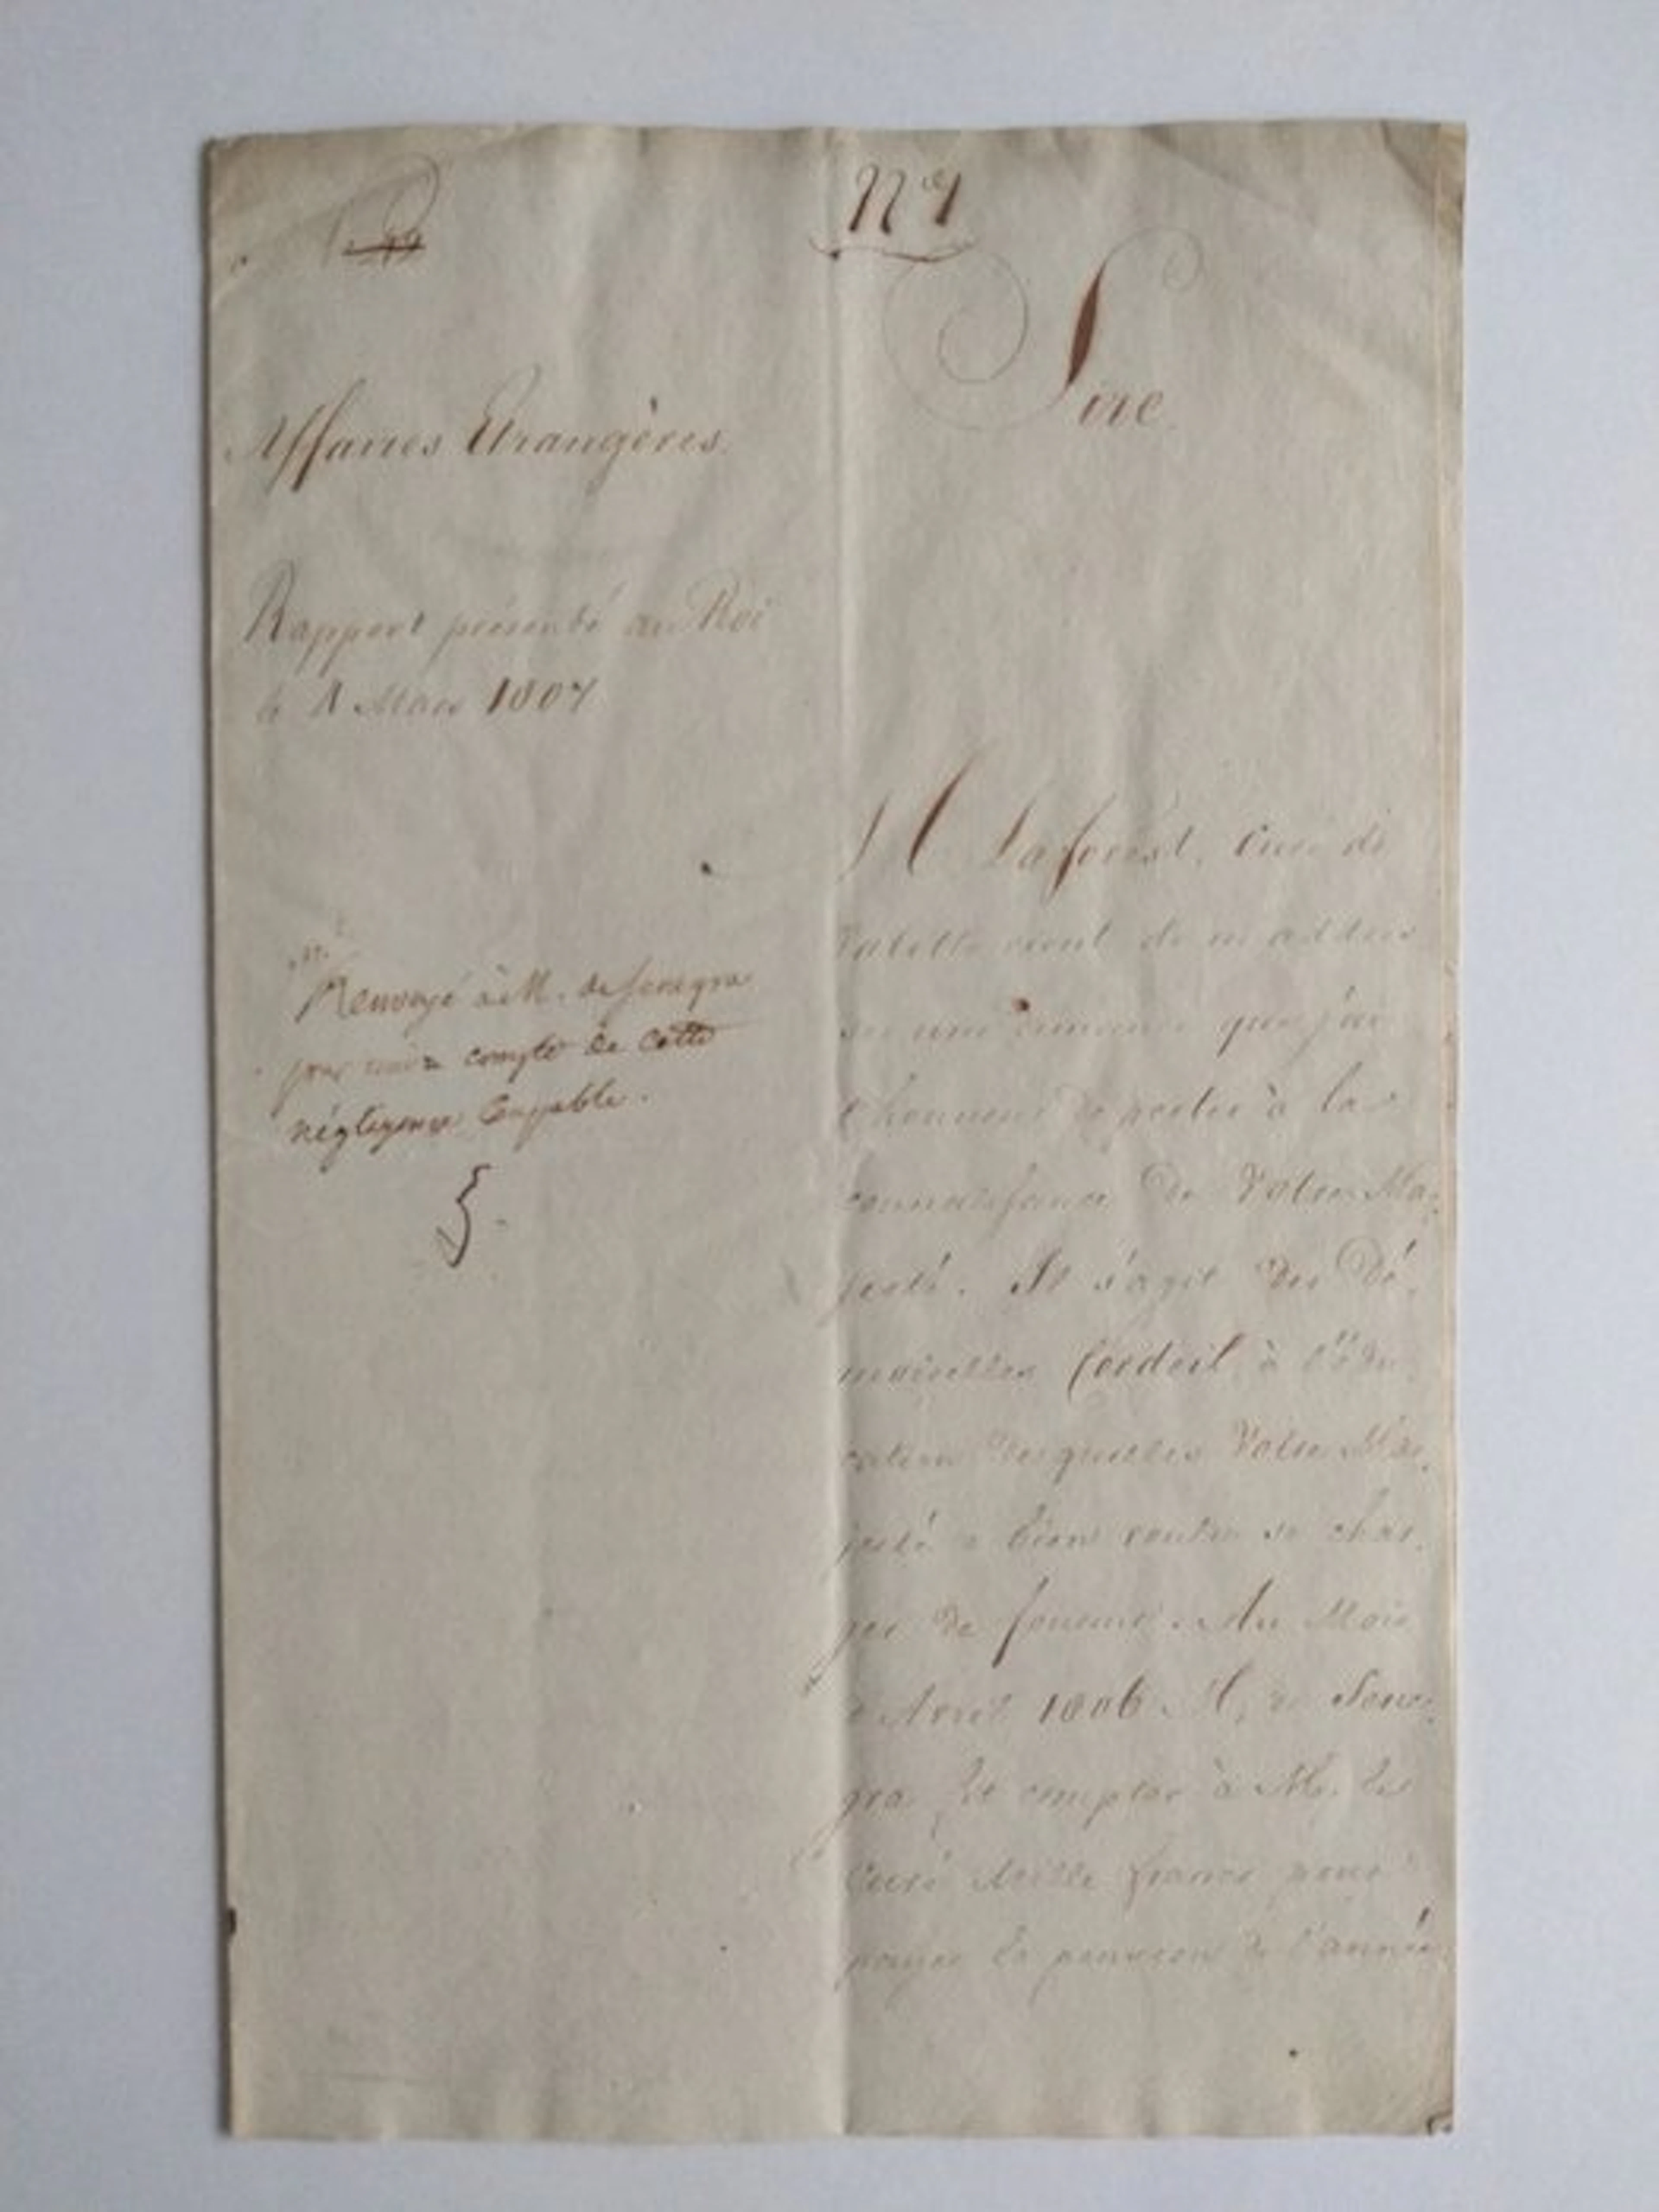 N° 1
Sire
Affaires Etrangères.
Rapport présenté au Roi
le 1 Mars 1807
Renvoyé à M. de Senegra
pour rendre compte de cette
négligence Coupable.
M Laforest, curé de
vient de m'addres
ser une demande que j'ai
l'honneur de porter à la
connaissance de Votre Ma-
jesté. Il s'agit des De-
moiselles Cordeil, à l'édu-
cation desquelles Votre Ma-
jesté a bien voulu se char-
ger de fournir. Au Mois
d'Avril 1806 M, de Sene-
gra fit compter à Mr. le
Curé Mille francs pour
payer la pension de l'année